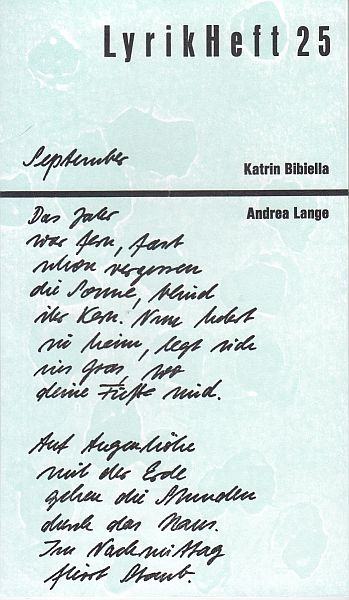 LyrikHeft 25
September
Katrin Bibiella
Andrea Lange
Das Jahr
war fern, fast
schon vergessen
die Sonne, blind
ihr Kern. Nun kehrt
sie heim, legt sich
ins Gras, wo
deine Füße sind.
Auf Augenhöhe
mit der Erde
gehen die Stunden
durch das Haus.
Im Nachmittag
flirrt Staub.